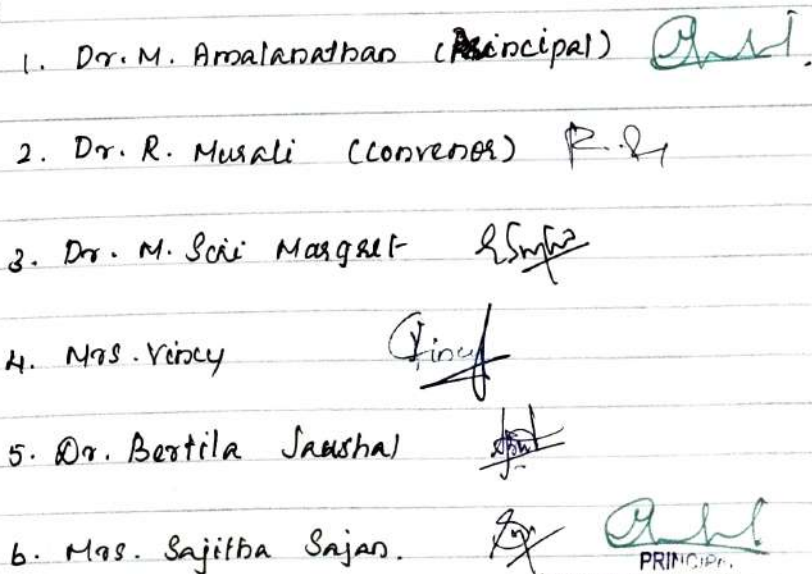 1. Dr. M. Amalanathan (Principal)
2. Dr. R. Murali (Convenor)
3. Dr. M. Sciri Margret
4. Mrs. Vincy Vincy
5. Dr. Bertila Jaushal
6. Mrs. Sajitha Sajan.
PRINCIPAL